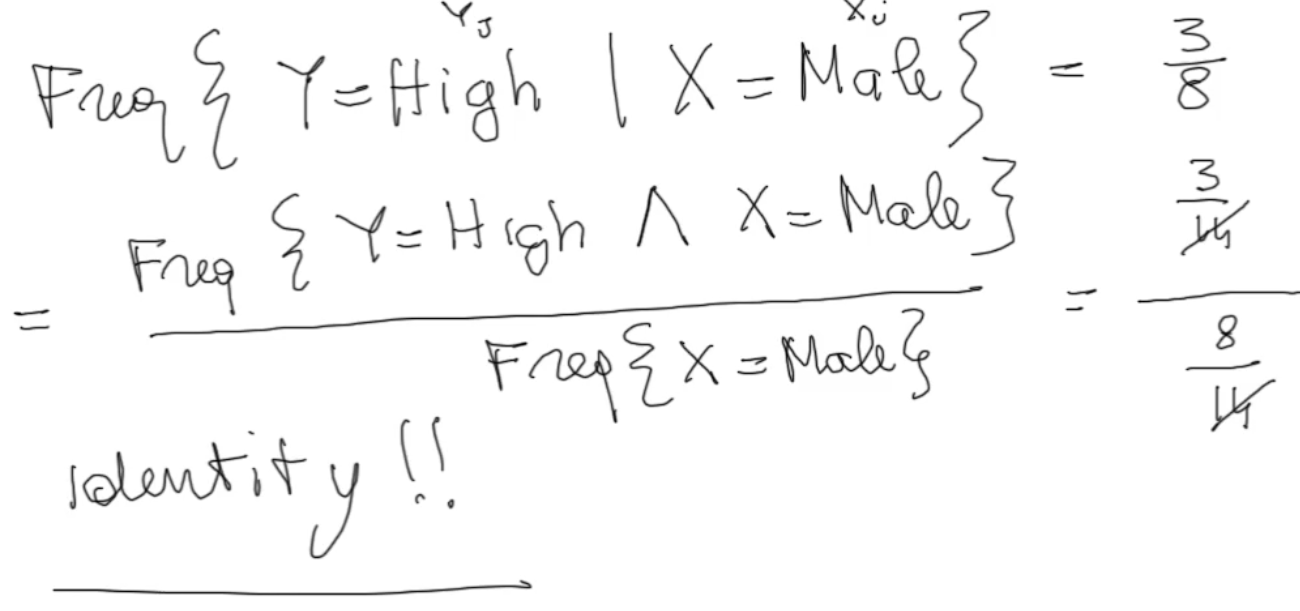 Yj Xi
Freq{ Y=High | X=Male} = 3/8
= Freq{ Y=High ∧ X=Male} / Freq{X=Male} = 3/14 / 8/14
identity !!